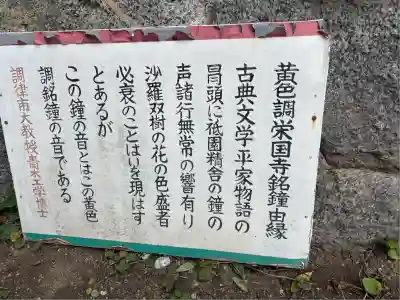 黄色調栄国寺銘鐘由縁
古典文学平家物語の
冒頭に祇園精舎の鐘の
声諸行無常の響有り
沙羅双樹の花の色盛者
必衰のことはいを現はす
とあるが
この鐘の音とはこの黄色
調銘鐘の音である
調律市大教授青木 博士